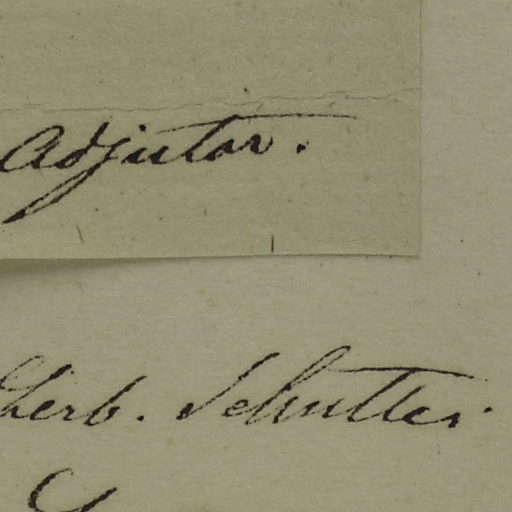 Adjutor.
Herb. Schuttler.